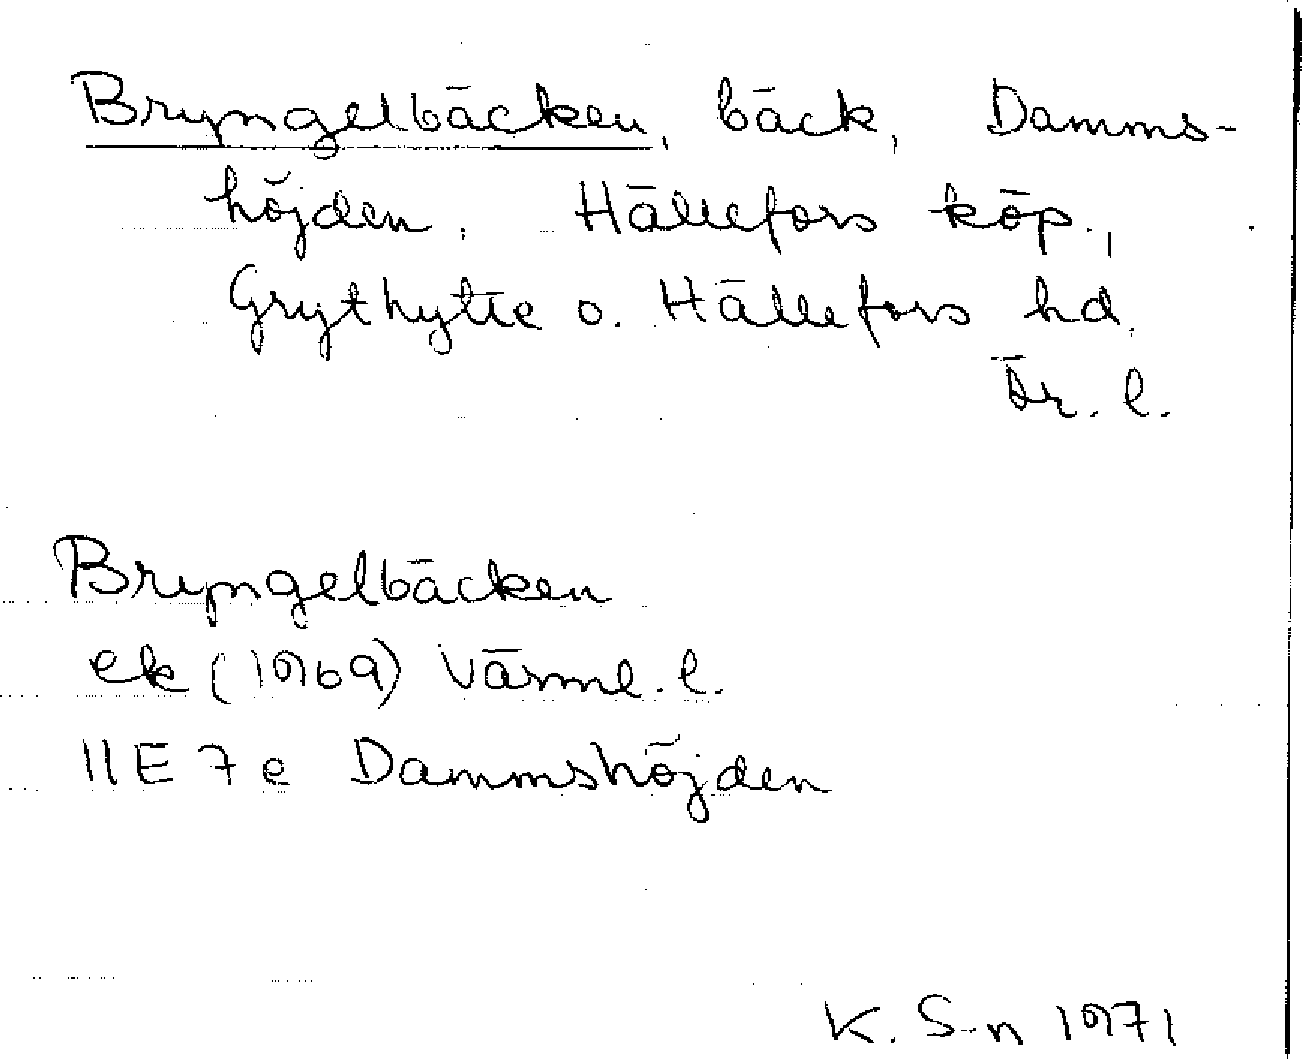 Bryngelbäcken, bäck, Damms-
höjden, Hällefors köp.,
Grythytte o. Hällefors hd.
Ör. l.
Bryngelbäcken
ek (1969) Värml. l.
11E 7e Dammshöjden
K. S-n 1971